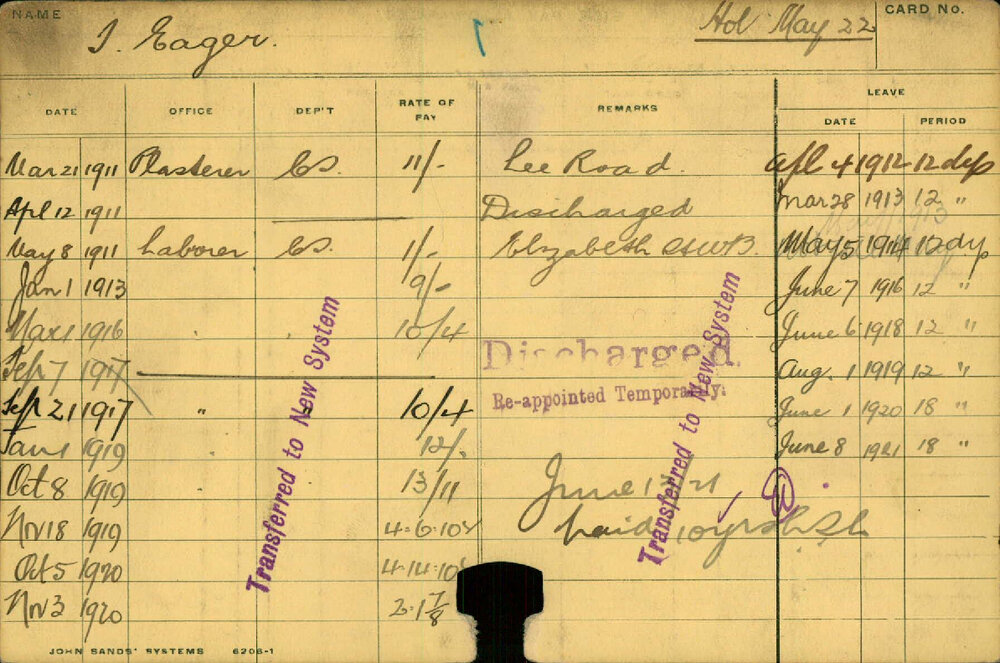 NAME
J. Eager.
Hol May 22
CARD No.
DATE OFFICE DEP'T RATE OF PAY REMARKS LEAVE
DATE PERIOD
Mar 21 1911 Plasterer CS. 11/- Lee Road. Apl 4 1912 12 dys
Apl 12 1911 Discharged Mar 28 1913 12 "
May 8 1911 Laborer CS. 1/- Elizabeth May 5 1914 12 dys
Jan 1 1913 9/- June 7 1916 12 "
Mar 1 1916 " " 10/4 June 6 1918 12 "
Sep 7 1917 Discharged. Aug. 1 1919 12 "
Sep 21 1917 " " 10/4 Re-appointed Temporarily. June 1 1920 18 "
Jan 1 1919 12/. June 8 1921 18 "
Oct 8 1919 13/11 June
Nov 18 1919 4.6.10 paid
Oct 5 1920 4.14.10
Nov 3 1920 2.1 7/8
Transferred to New System
Transferred to New System
JOHN SANDS' SYSTEMS 6206-1